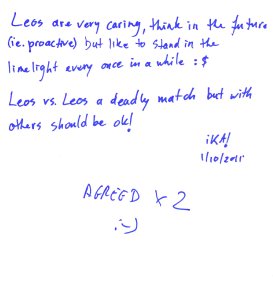 Leos are very caring, think in the future
(ie. proactive) but like to stand in the
limelight every once in a while :$
Leos vs. Leos a deadly match but with
others should be ok!
iKA!
1/10/2011
AGREED x 2
:-)